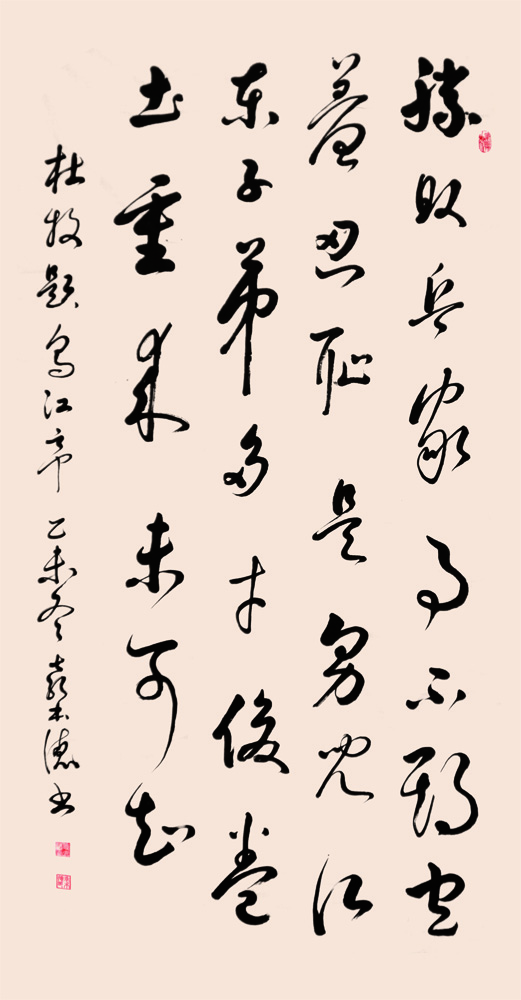 胜败兵家事不期包
羞忍耻是男儿江
东子弟多才俊卷
土重来未可知
杜牧题乌江亭 乙未冬 德书